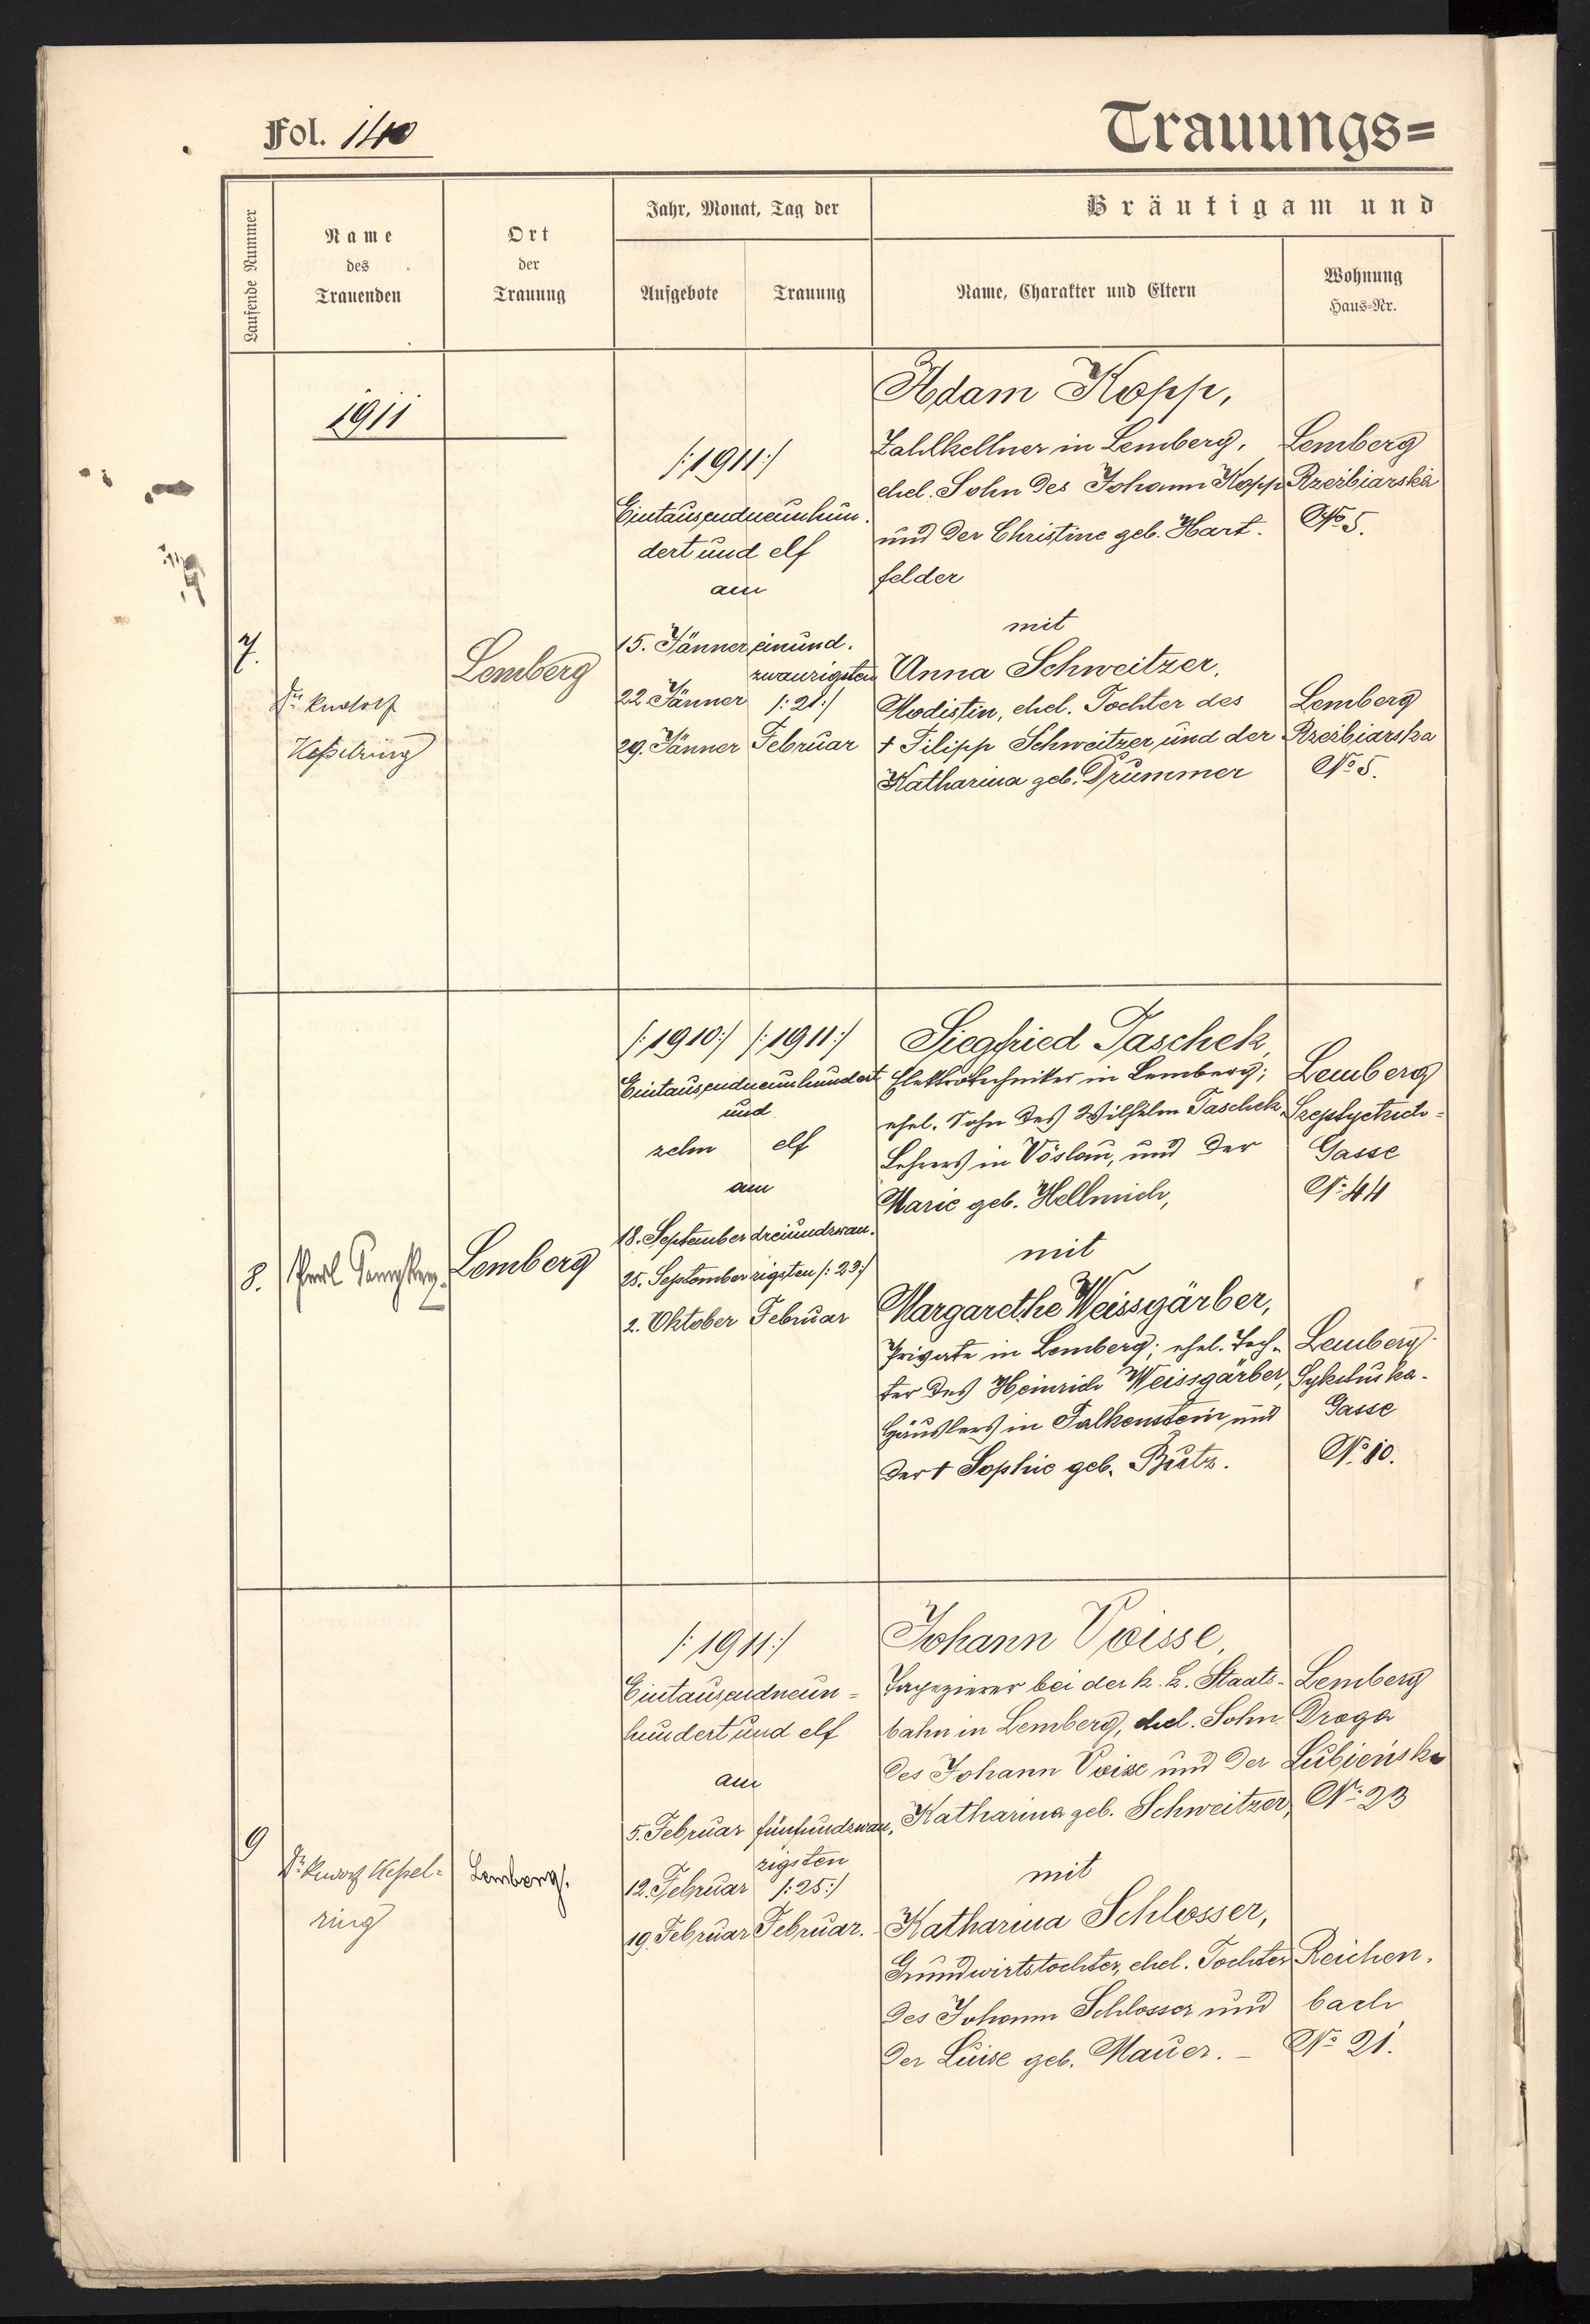 Fol. 140
Trauungs=
Laufende Nummer
Name
des
Trauenden
Ort
der
Trauung
Jahr, Monat, Tag der
Aufgebote
Trauung
Bräutigam und
Name, Charakter und Eltern
Wohnung
Haus=Nr.
1911
7.
Dr. Rudolf
Kesselring
Lemberg
/:1911:/
Eintausendneunhun-
dert und elf
am
15. Jänner
22. Jänner
29. Jänner
einund-
zwanzigsten
/:21:/
Februar
Adam Kopp,
Zahlkellner in Lemberg,
ehel. Sohn des Johann Kopp
und der Christine geb. Hart-
felder
mit
Anna Schweitzer,
Modistin, ehel. Tochter des
† Filipp Schweitzer und der
Katharina geb. Drummer
Lemberg
Rzeźbiarska
No 5.
Lemberg
Rzeźbiarska
No 5.
8.
Lemberg
/:1910:/ /:1911:/
Eintausendneunhundert
und
zehn elf
am
18. September
25. September
2. Oktober
dreiundzwan-
zigsten /:23:/
Februar
Siegfried Taschek,
Elektrotechniker in Lemberg;
ehel. Sohn des Wilhelm Taschek,
Lehrers in Vöslau, und der
Marie geb. Hellmich,
mit
Margarethe Weissgärber,
Private in Lemberg; ehel. Toch-
ter des Heinrich Weissgärber,
Häuslers in Falkenstein und
der † Sophie geb. Butz.
Lemberg
Gasse
No 44
Lemberg
Sykstuska-
Gasse
No 10.
9
Dr. Rudolf Kessel-
ring
Lemberg.
/:1911:/
Eintausendneun=
hundert und elf
am
5. Februar
12. Februar
19. Februar
fünfundzwan-
zigsten
/:25:/
Februar.
Johann Voisse,
Tapezierer bei der k. k. Staats-
bahn in Lemberg, ehel. Sohn
des Johann Voisse und der
Katharina geb. Schweitzer,
mit
Katharina Schlosser,
Grundwirtstochter, ehel. Tochter
des Johann Schlosser und
der Luise geb. Mauer. –
Lemberg
Droga
Lubieńska
No 23
Reichen-
bach
No 21.